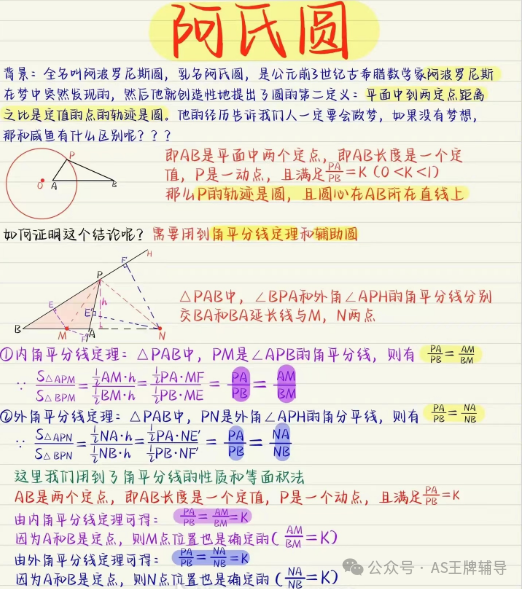 阿氏圆
背景：全名叫阿波罗尼斯圆，乳名阿氏圆，是公元前3世纪古希腊数学家阿波罗尼斯
在梦中突然发现的，然后他就创造性地提出了圆的第二定义：平面中到两定点距离
之比是定值的点的轨迹是圆。他的经历告诉我们人一定要会做梦，如果没有梦想，
那和咸鱼有什么区别呢？？？
P
O
A
B
即AB是平面中两个定点，即AB长度是一个定
值，P是一动点，且满足PA/PB=K（0<K<1）
那么P的轨迹是圆，且圆心在AB所在直线上
如何证明这个结论呢？需要用到角平分线定理和辅助圆
H
F'
P
h
E
E'
B
M
A
N
△PAB中，∠BPA和外角∠APH的角平分线分别
交BA和BA延长线与M，N两点
①内角平分线定理：△PAB中，PM是∠APB的角平分线，则有 PA/PB=AM/BM
∵ S△APM/S△BPM=½AM·h/½BM·h=½PA·MF/½PB·ME=PA/PB=AM/BM
②外角平分线定理：△PAB中，PN是外角∠APH的角分平线，则有 PA/PB=NA/NB
∵ S△APN/S△BPN=½NA·h/½NB·h=½PA·NE'/½PB·NF'=PA/PB=NA/NB
这里我们用到了角平分线的性质和等面积法
AB是两个定点，即AB长度是一个定值，P是一个动点，且满足PA/PB=K
由内角平分线定理可得：PA/PB=AM/BM=K
因为A和B是定点，则M点位置也是确定的（AM/BM=K）
由外角平分线定理可得：PA/PB=NA/NB=K
因为A和B是定点，则N点位置也是确定的（NA/NB=K）
公众号·AS王牌辅导